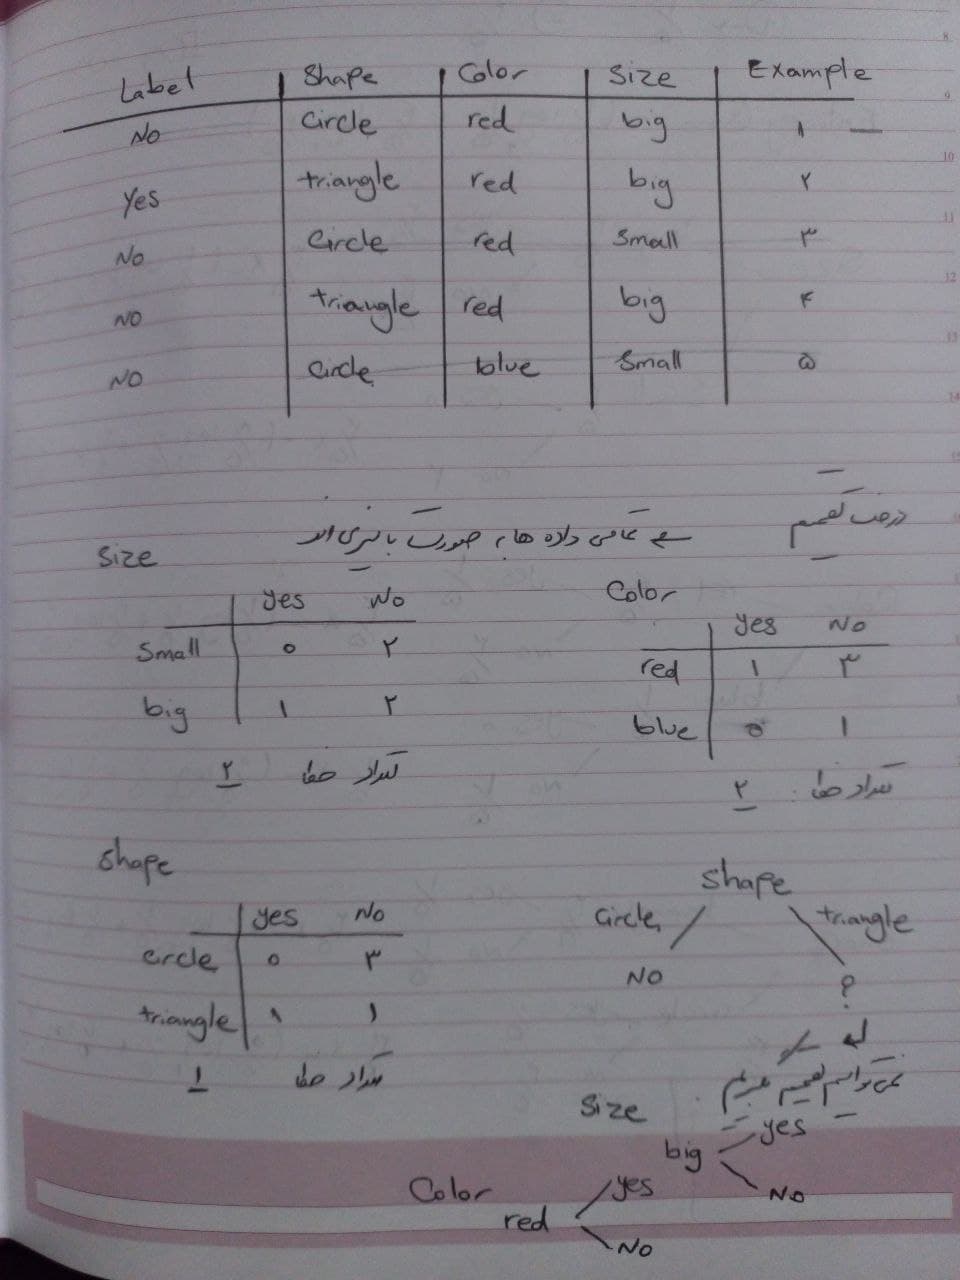 Label Shape Color Size Example
No Circle red big ۱
Yes triangle red big ۲
No Circle red Small ۳
NO triangle red big ۴
NO Circle blue Small ۵
درخت تصمیم
تمامی داده ها به صورت باینری اند
Size
yes No
Small ۰ ۲
big ۱ ۲
تعداد خطا ۲
Color
yes No
red ۱ ۳
blue ۰ ۱
تعداد خطا: ۲
Shape
yes No
circle ۰ ۳
triangle ۱ ۱
تعداد خطا ۱
Shape
Circle triangle
NO ?
نمی توانیم تصمیم بگیریم
Size
big yes
No
Color
red yes
No